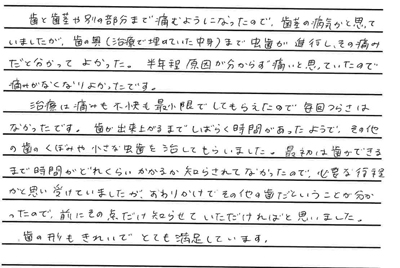 歯と歯茎や別の部分まで痛むようになったので、歯茎の病気かと思って
いましたが、歯の奥(治療で埋めていた中身)まで虫歯が進行し、その痛み
だと分かってよかった。半年程原因が分からず痛いと思っていたので
痛みがなくなりよかったです。
治療は痛みも不快も最小限でしてもらえたので毎回つらさは
なかったです。歯が出来上がるまでしばらく時間があったようで、その他
の歯のくぼみや小さな虫歯を治してもらいました。最初は歯ができる
まで時間がどれくらいかかるか知らされてなかったので、必要な行程
かと思い受けていましたが、おわりかけでその他の歯だということが分か
ったので、前にその点だけ知らせていただければと思いました。
歯の形もきれいでとても満足しています。